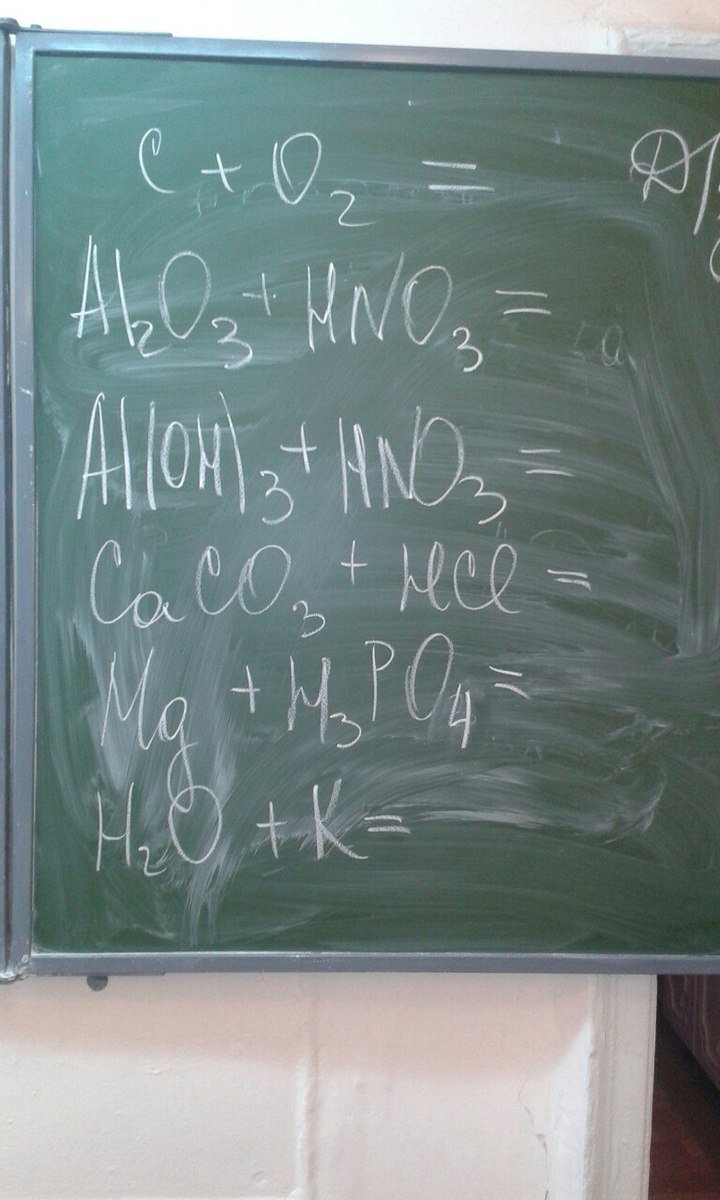 C + O₂ =
Al₂O₃ + HNO₃ =
Al(OH)₃ + HNO₃ =
CaCO₃ + HCl =
Mg + H₃PO₄ =
H₂O + K =